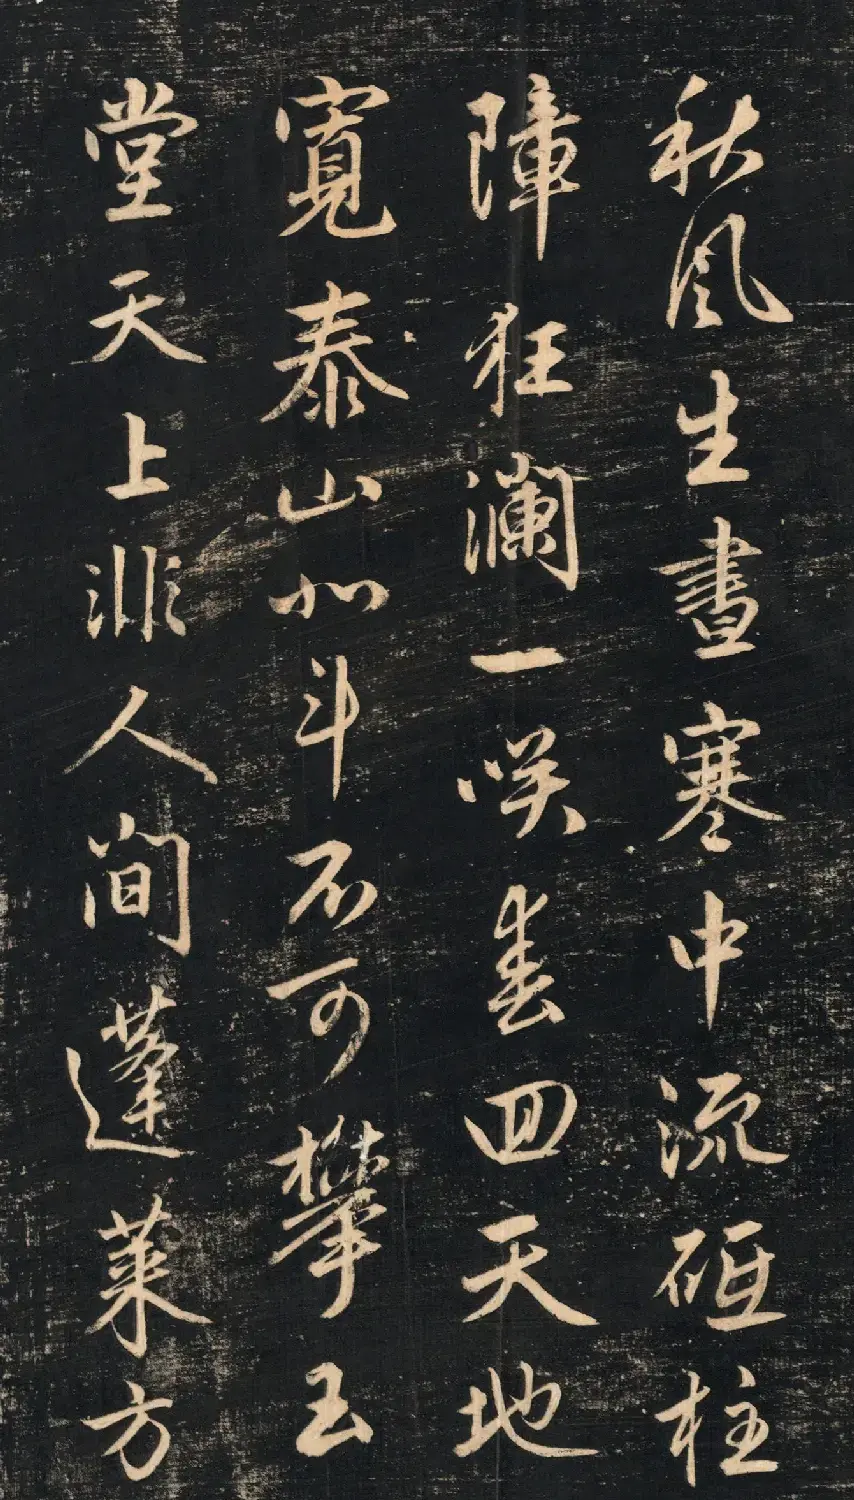 秋風生晝寒中流砥柱
障狂瀾一咲春回天地
寬泰山北斗不可攀玉
堂天上非人間蓬萊方